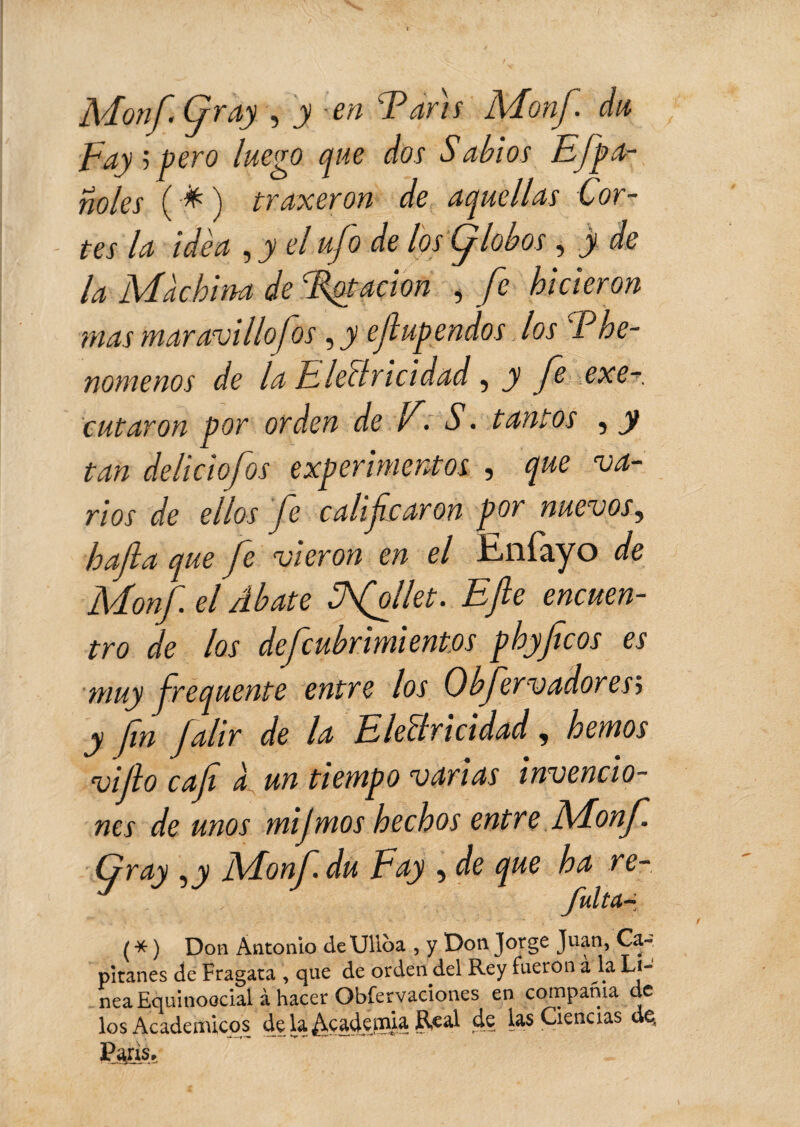 Monſ. Gray , y en Paris Monſ. du
Fay ; pero luego que dos Sabios Eſpa-
ñoles ( * ) traxeron de aquellas Cor-
tes la idèa , y el uſo de los Globos , y de
la Màchina de Rotacion , ſe hicieron
mas maravilloſos , y eſtupendos los Phe-
nomenos de la Electricidad , y ſe exe-
cutaron por orden de V. S. tantos , y
tan delicioſos experimentos , que va-
rios de ellos ſe calificaron por nuevos,
haſta que ſe vieron en el Enſayo de
Monſ. el Abate Nollet. Eſte encuen-
tro de los deſcubrimientos phyſicos es
muy frequente entre los Obſervadores;
y ſin ſalir de la Electricidad , hemos
viſto caſi à un tiempo varias invencio-
nes de unos miſmos hechos entre Monſ.
Gray , y Monſ. du Fay , de que ha re-
ſulta-
( * ) Don Antonio de Ullòa , y Don Jorge Juan, Ca-
pitanes de Fragata , que de orden del Rey fueron à la Li-
nea Equinoocial à hacer Obſervaciones en compañia de
los Academicos de la Academia Real de las Ciencias de
Paris.